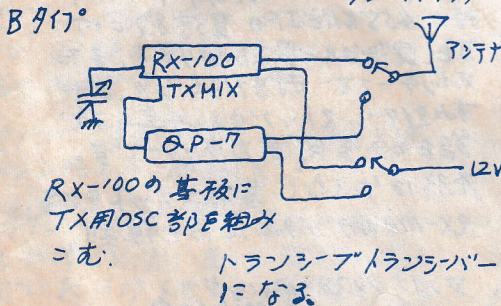 Bタイプ
RX-100
アンテナ
TXMIX
QP-7
12V
RX-100の基板に
TX用OSC部を組み
こむ.
トランシーブトランシーバー
になる。